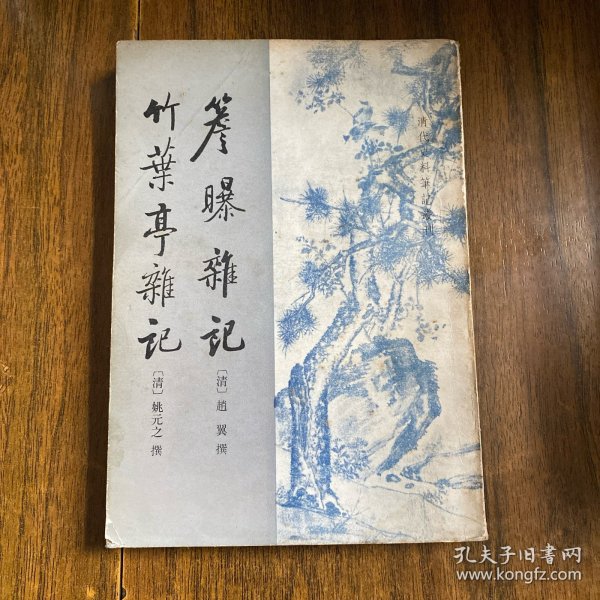 清代史料筆記叢刊
簷曝雜記
〔清〕趙翼撰
竹葉亭雜記
〔清〕姚元之撰
孔夫子旧书网
www.kongfz.com